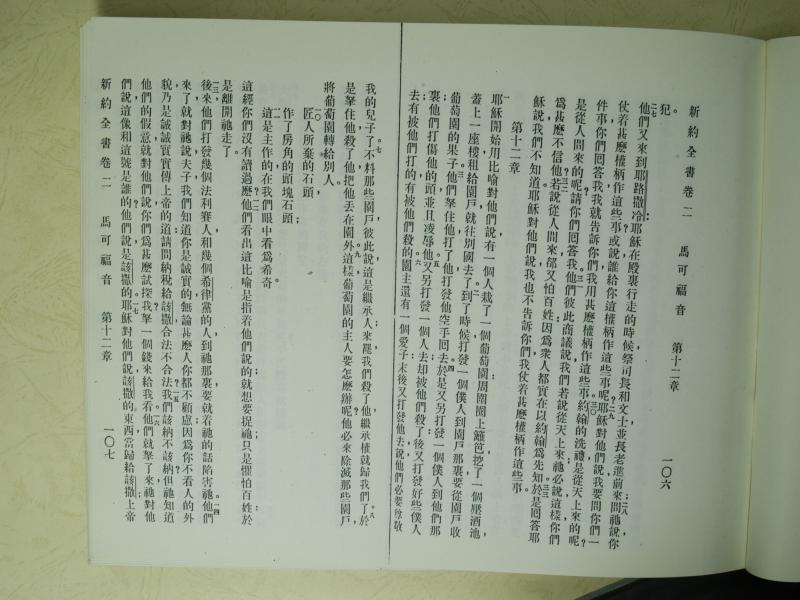 新約全書卷二　馬可福音　第十二章　一〇六
犯。
他們又來到耶路撒冷耶穌在殿裏行走的時候祭司長和文士並長老進前來問祂說你
仗着甚麼權柄作這些事或說誰給你這權柄作這些事呢耶穌對他們說我要問你們一
件事你們回答我我就告訴你們我用甚麼權柄作這些事約翰的洗禮是從天上來的呢
是從人間來的呢請你們回答我他們彼此商議說我們若說從天上來祂必說這樣你們
爲甚麼不信他若說從人間來卻又怕百姓因爲衆人都實在以約翰爲先知於是回答耶
穌說我們不知道耶穌對他們說我也不告訴你們我仗着甚麼權柄作這些事
第十二章
耶穌開始用比喻對他們說有一個人栽了一個葡萄園周圍圈上籬笆挖了一個壓酒池
蓋上一座樓租給園戶就往別國去了到了時候打發一個僕人到園戶那裏要從園戶收
葡萄園的果子他們拏住他打了他打發他空手回去於是又另打發一個僕人到他們那
裏他們打傷他的頭並且凌辱他又另打發一個人去却被他們殺了後又打發好些僕人
去有被他們打的有被他們殺的園主還有一個愛子末後又打發他去說他們必要尊敬
我的兒子了不料那些園戶彼此說這是繼承人來罷我們殺了他繼承權就歸我們了於
是拏住他殺了他把他丟在園外這樣葡萄園的主人要怎麼辦呢他必來除滅那些園戶
將葡萄園轉給別人
匠人所棄的石頭
作了房角的頭塊石頭
這是主作的在我們眼中看爲希奇
這經你們沒有讀過麼他們看出這比喻是指着他們說的就想要捉祂只是懼怕百姓於
是離開祂走了
後來他們打發幾個法利賽人和幾個希律黨的人到祂那裏要就着祂的話陷害祂他們
來了就對祂說夫子我們知道你是誠實的無論甚麼人你都不顧慮因爲你不看人的外
貌乃是誠誠實實傳上帝的道請問納稅給該撒合法不合法我們該納不該納但祂知道
他們的假意就對他們說你們爲甚麼試探我拏一個錢來給我看他們就拏了來祂對他
們說這像和這號是誰的他們說是該撒的耶穌對他們說該撒的東西當歸給該撒上帝
新約全書卷二　馬可福音　第十二章　一〇七